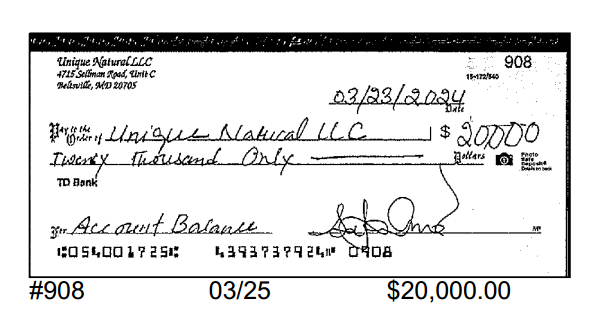 Unique Natural LLC
908
4715 Sellman Road, Unit C
Beltsville, MD 20705
15-172/540
03/23/2024
Date
Pay to the Order of Unique Natural LLC $ 20000
Twenty Thousand Only Dollars
Photo Safe Deposit
TD Bank
For Account Balance
MP
⑆054001725⑆ 4393737924⑈ 0908
#908 03/25 $20,000.00